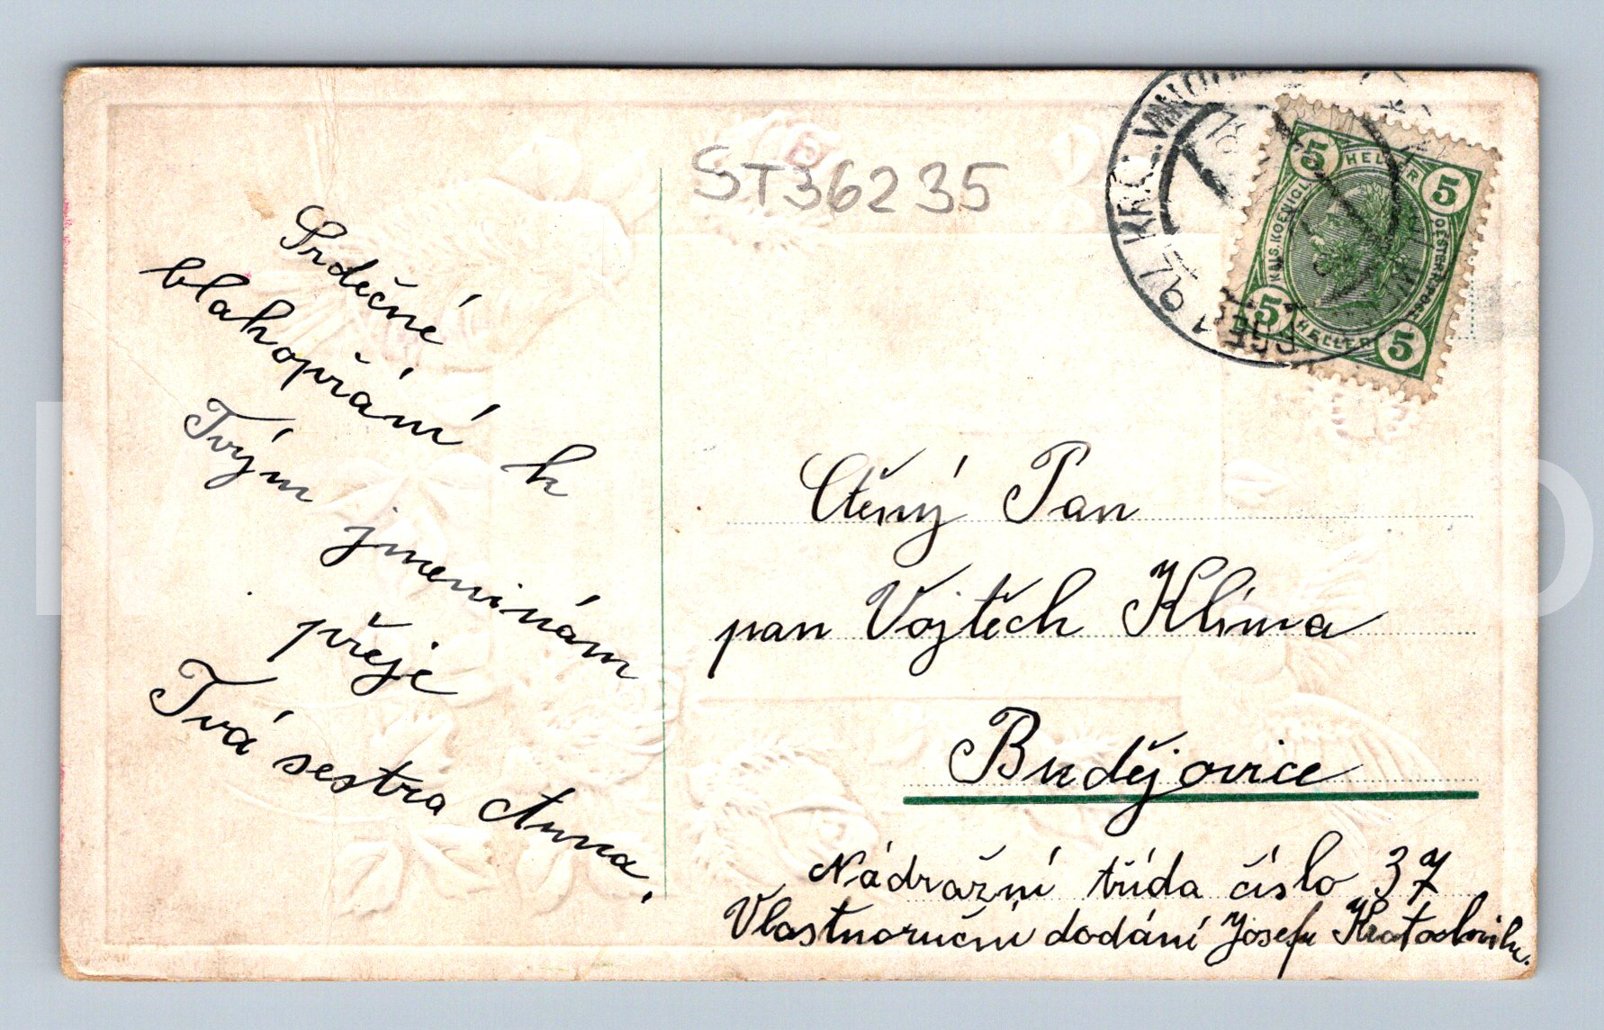 ST36235
Srdečné
blahopřání k
Tvým jmeninám
přeje
Tvá sestra Anna.
5 HELLER 5
KAIS. KOENIGL.
OESTERR. POST
5 HELLER 5
Ctěný Pan
pan Vojtěch Klíma
Budějovice
Nádražní třída číslo 37
Vlastnoruční dodání Josefu